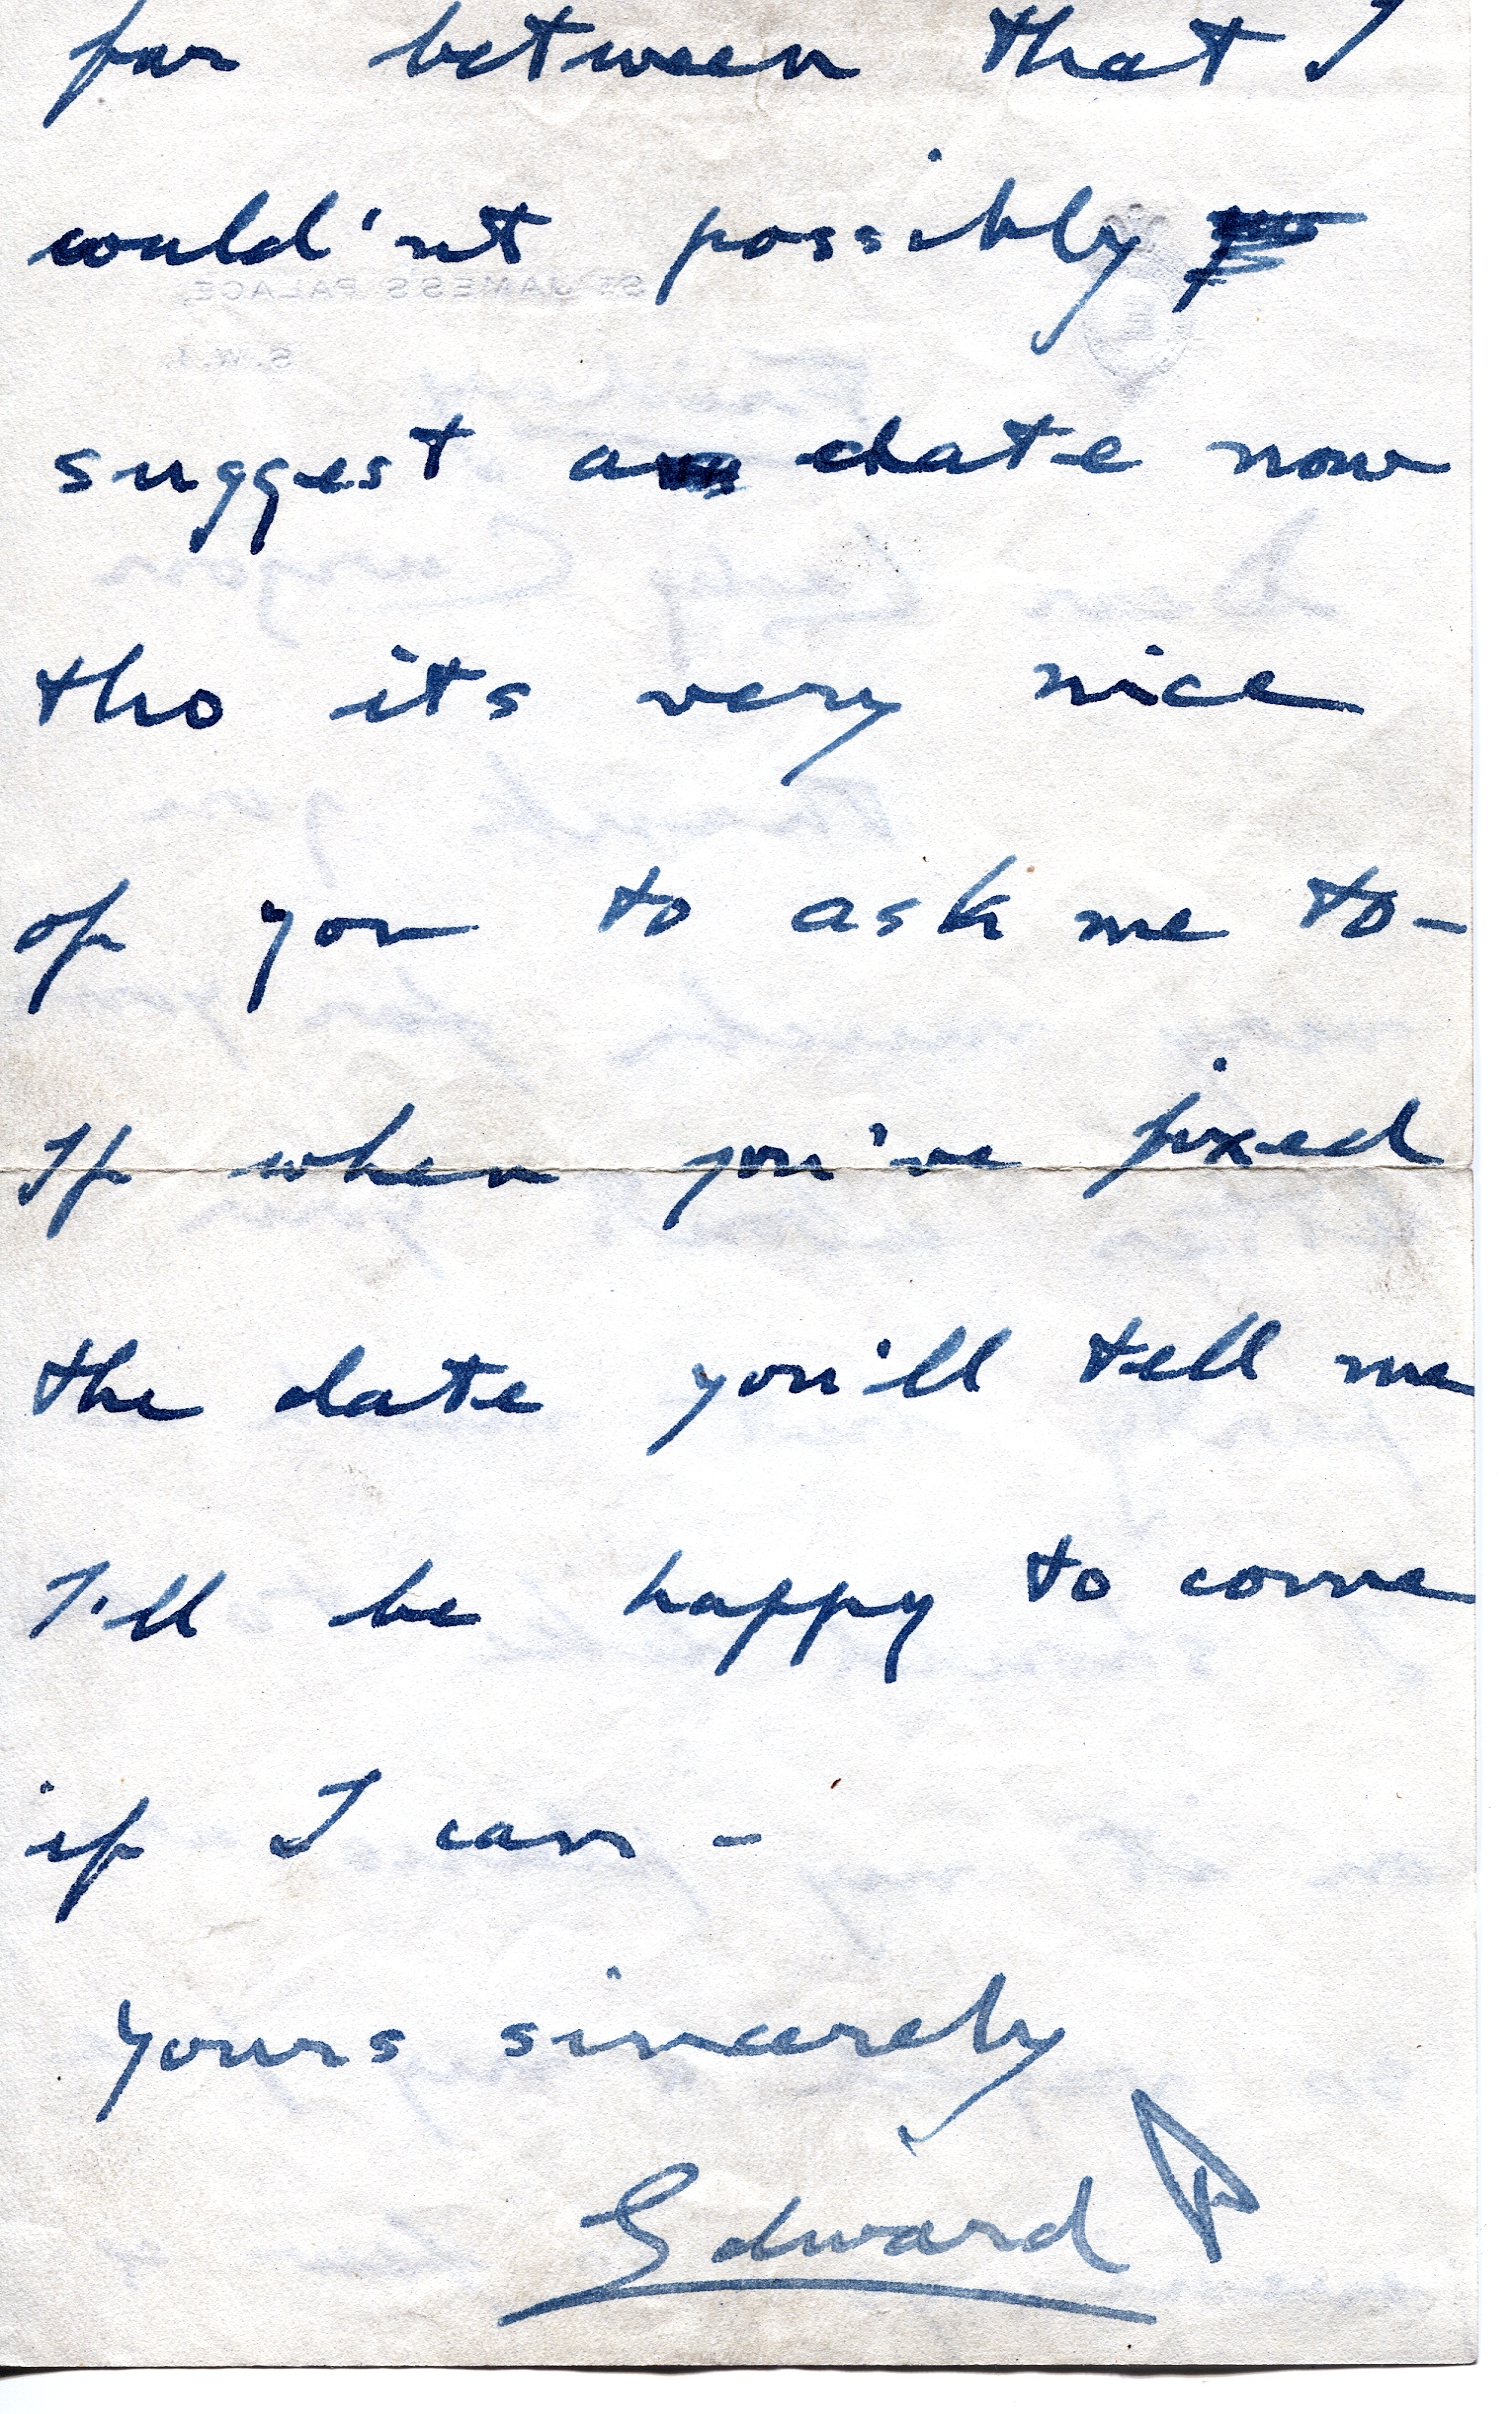 far between that I
could'nt possibly
suggest a date now
tho its very nice
of you to ask me to-
If when you've fixed
the date you'll tell me
I'll be happy to come
if I can -
Yours sincerely
Edward P